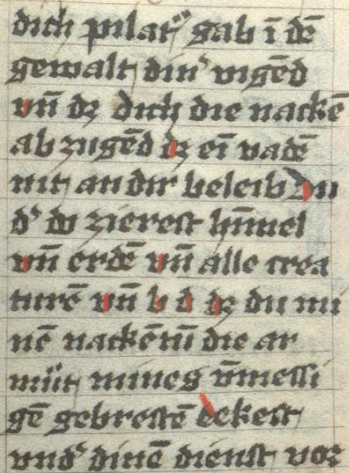 dich pilat9 gab ī dē
gewalt din' vigēd
vn̄ dz dich die nackē
ab zugēd dz ei vadē
nit an dir beleib Du
d' do zierest him̄el
vn̄ erdē vn̄ alle crea
turē vn̄ dz du mi
nē nackēm̄ die ar
mu̍t mines v̄messi
gē gebrestē deckest
vnd' dinē dienst vor